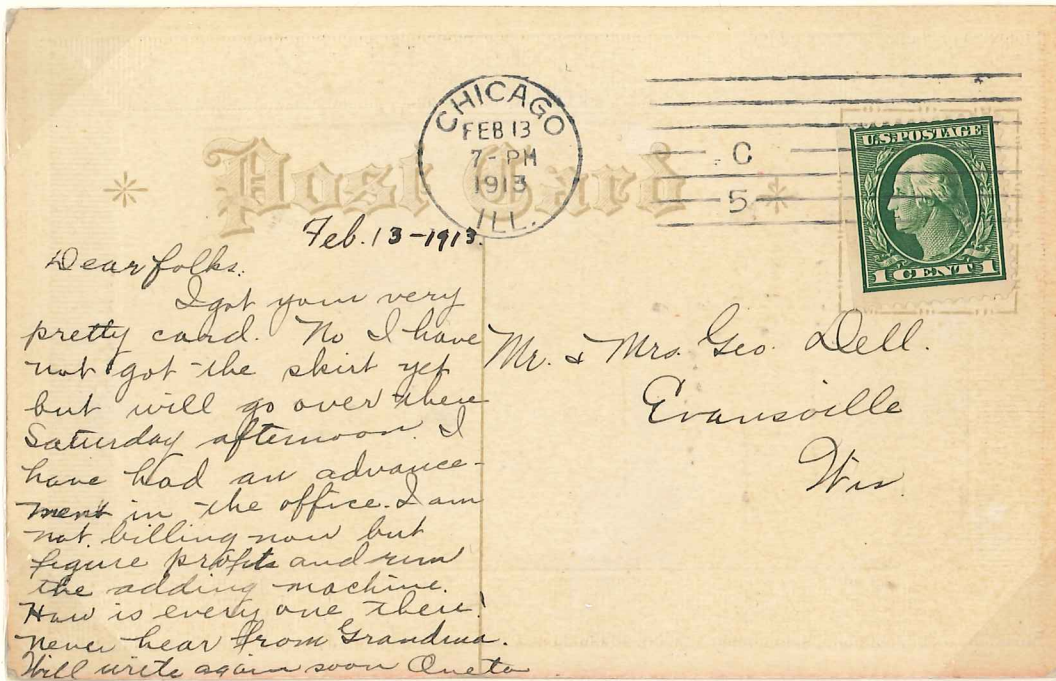 Post Card
CHICAGO
FEB 13
7-PM
1913
ILL.
C
5
U.S. POSTAGE
1 CENT 1
Feb. 13-1913.
Dear folks.
I got your very
pretty card. No I have
not got the skirt yet
but will go over there
Saturday afternoon. I
have had an advance-
ment in the office. I am
not billing now but
figure profits and run
the adding machine.
How is every one there?
Never hear from Grandma.
Will write again soon Oneta
Mr. & Mrs. Geo. Dell.
Evansville
Wis.